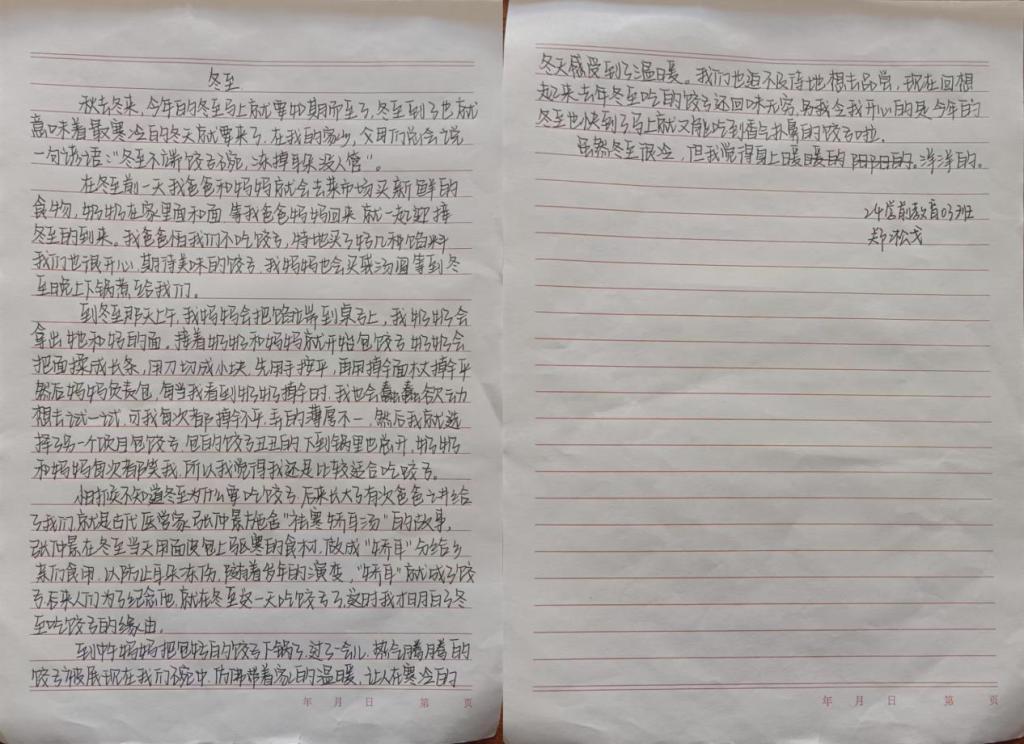 冬至
秋去冬来，今年的冬至马上就要如期而至了，冬至到了也就
意味着最寒冷的冬天就要来了，在我的家乡，父母们总会说
一句谚语：“冬至不端饺子碗，冻掉耳朵没人管”。
在冬至前一天我爸爸和妈妈就会去菜市场买新鲜的
食物，奶奶在家里面和面等我爸爸妈妈回来就一起迎接
冬至的到来。我爸爸怕我们不吃饺子，特地买了好几种馅料
我们也很开心，期待美味的饺子，我妈妈也会买点汤圆等到冬
至晚上下锅煮至给我们。
到冬至那天上午，我妈妈会把馅拉端到桌子上，我奶奶会
拿出她和好的面。接着奶奶和妈妈就开始包饺子奶奶会
把面揉成长条，用刀切成小块，先用手按平，再用擀面杖擀平
然后妈妈负责包，每当我看到奶奶擀的时，我也会蠢蠢欲动
想去试一试，可我每次都擀不平，弄的薄厚不一，然后我就选
择了另一个项目包饺子，包的饺子丑丑的下到锅里也总开，奶奶
和妈妈每次都笑我，所以我觉得我还是比较适合吃饺子。
小时候不知道冬至为什么要吃饺子后来长大了有次爸爸讲给
了我们就是古代医学家张仲景施舍“祛寒娇耳汤”的故事，
张仲景在冬至当天用面皮包上驱寒的食材，做成“娇耳”分给乡
亲们食用，以防止耳朵冻伤，随着多年的演变，“娇耳”就成了饺
子后来人们为了纪念他，就在冬至这一天吃饺子了，这时我才明白了冬
至吃饺子的缘由。
到中午妈妈把包好的饺子下锅了，过了一会儿，热气腾腾的
饺子被展现在我们碗中，仿佛带着家的温暖，让人在寒冷的
冬天感受到了温暖。我们也迫不及待地想去品尝，现在回想
起来去年冬至吃的饺子还回味无穷，另我令我开心的是今年的
冬至也快到了马上就又能吃到香气扑鼻的饺子啦。
虽然冬至很冷，但我觉得身上暖暖的阳阳的。洋洋的。
24学前教育03班
郑淞戈
年 月 日 第 页
年 月 日 第 页